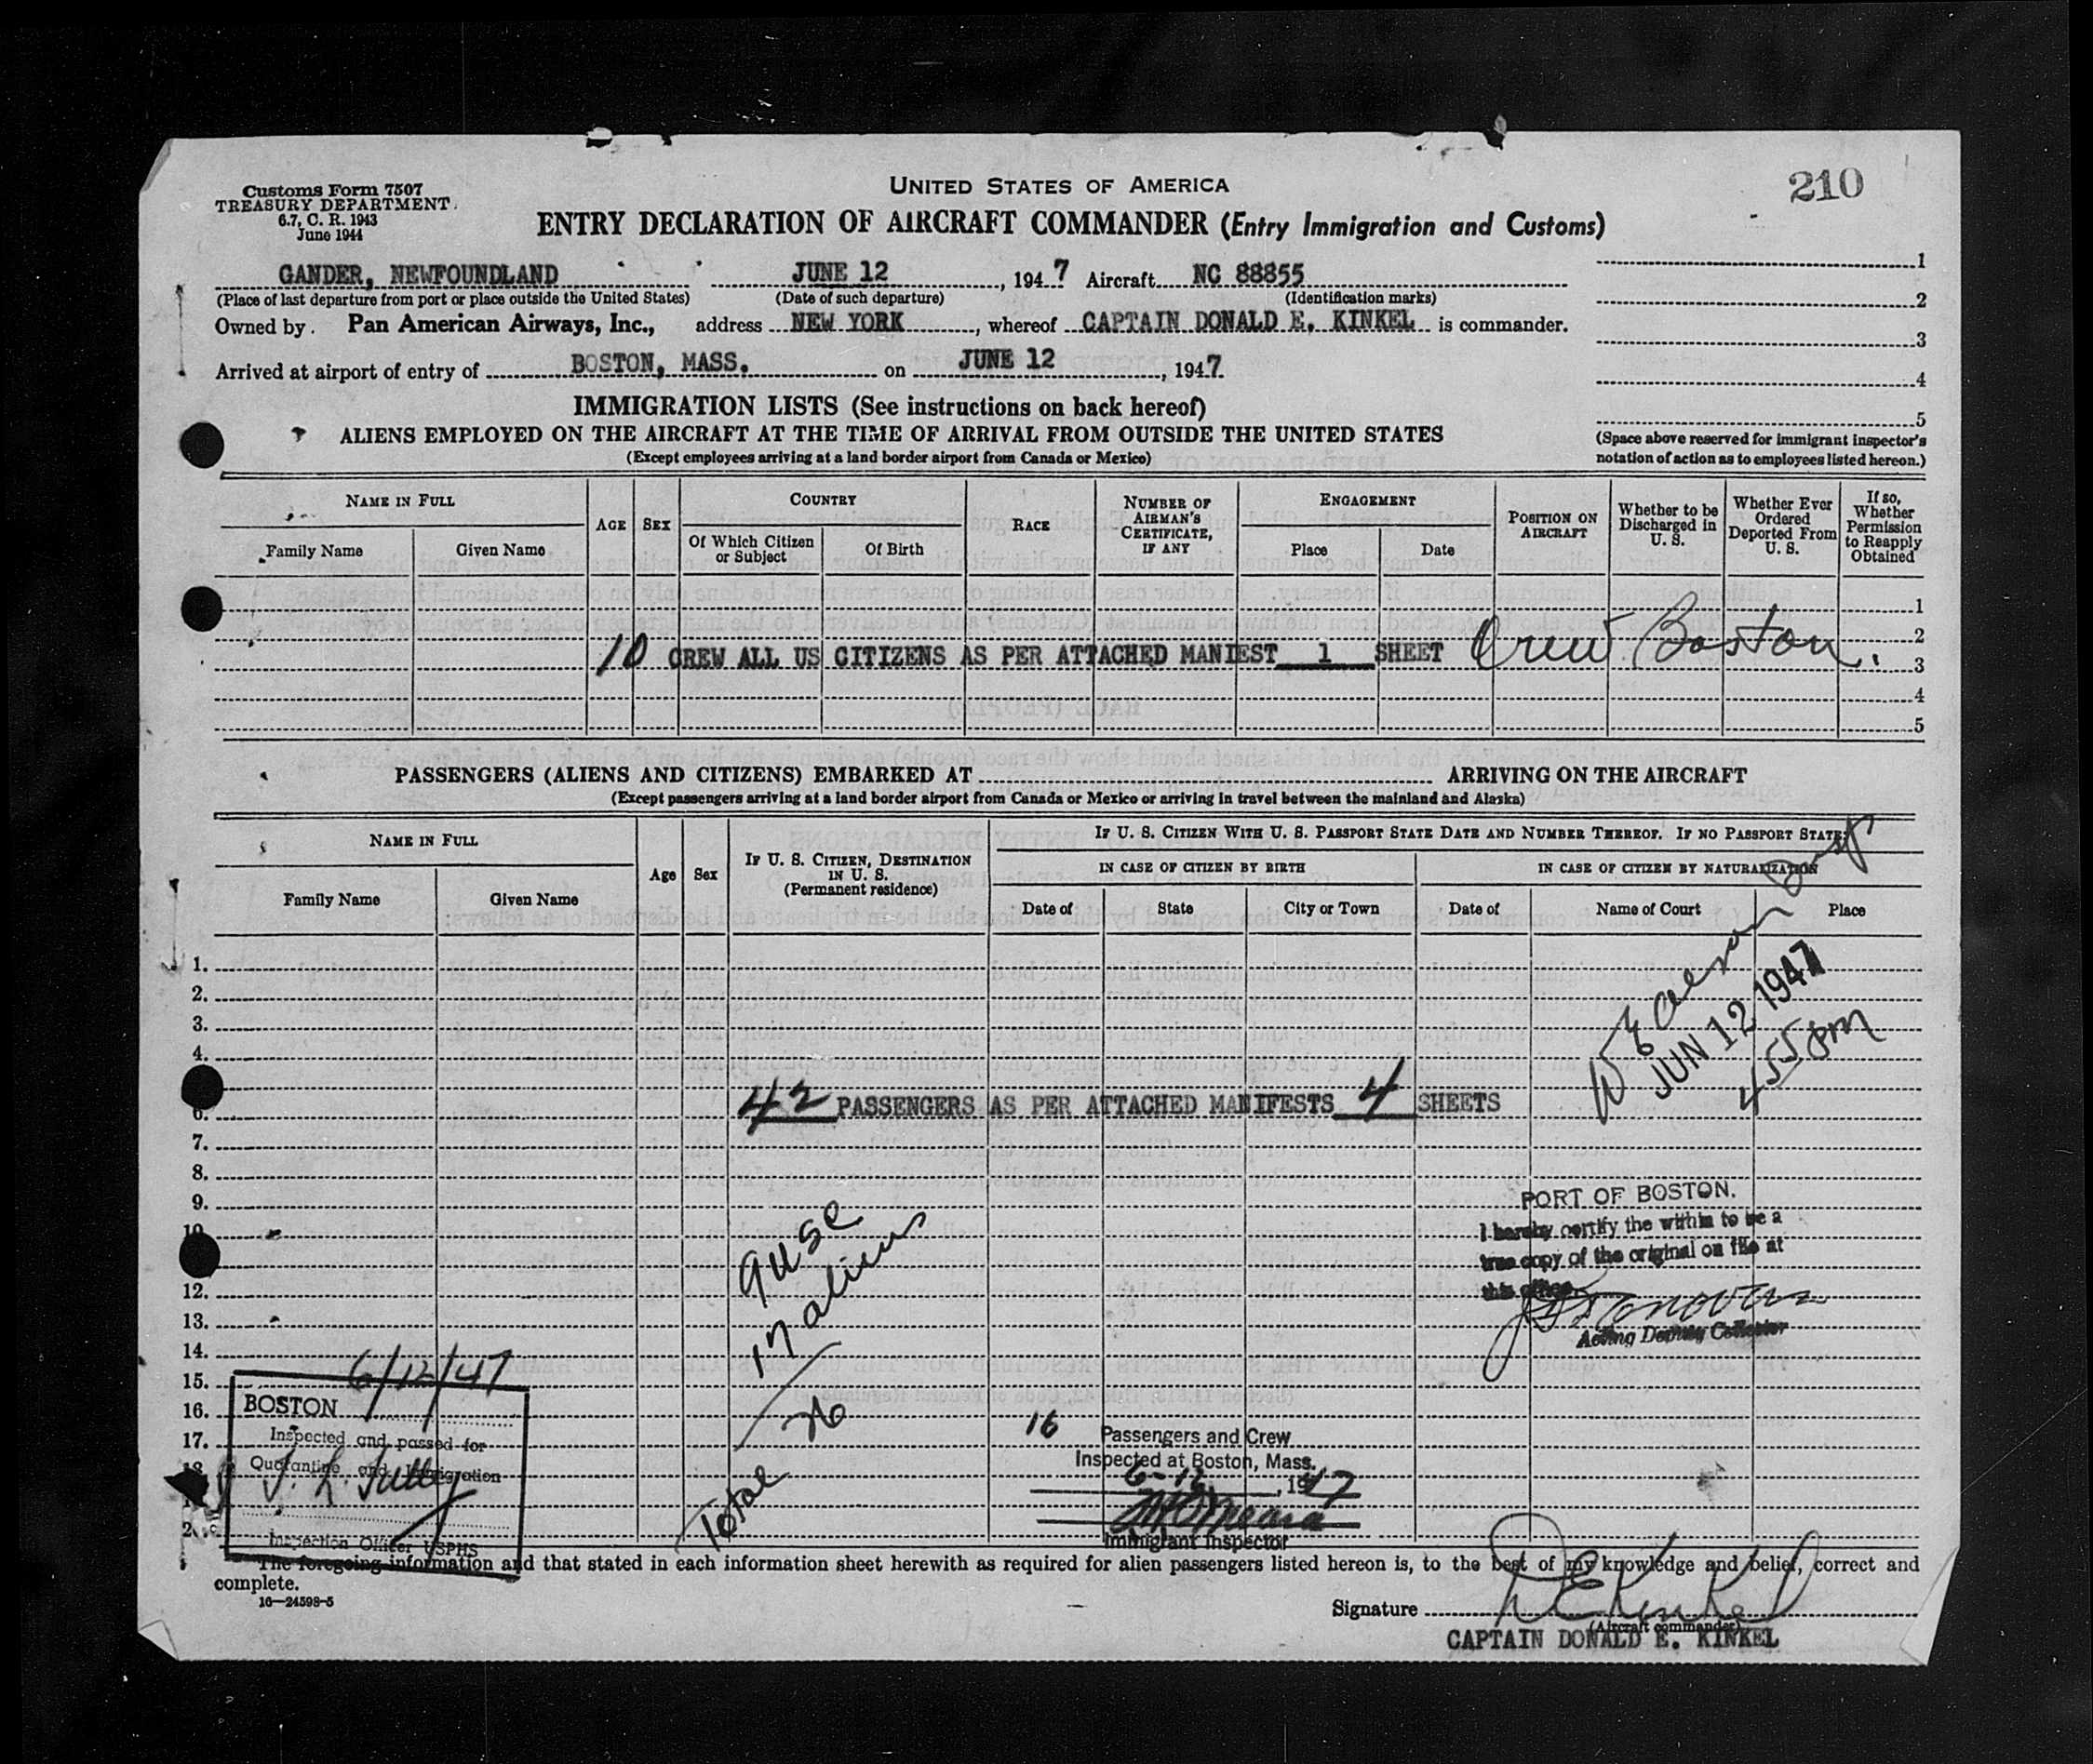 210
Customs Form 7507
TREASURY DEPARTMENT.
6.7, C. R. 1943
June 1944
UNITED STATES OF AMERICA
ENTRY DECLARATION OF AIRCRAFT COMMANDER (Entry Immigration and Customs)
GANDER, NEWFOUNDLAND JUNE 12, 1947 Aircraft NC 88855
(Place of last departure from port or place outside the United States) (Date of such departure) (Identification marks)
Owned by. Pan American Airways, Inc., address NEW YORK, whereof CAPTAIN DONALD E. KINKEL is commander.
Arrived at airport of entry of BOSTON, MASS. on JUNE 12, 1947.
1
2
3
4
5
(Space above reserved for immigrant inspector's
notation of action as to employees listed hereon.)
IMMIGRATION LISTS (See instructions on back hereof)
ALIENS EMPLOYED ON THE AIRCRAFT AT THE TIME OF ARRIVAL FROM OUTSIDE THE UNITED STATES
(Except employees arriving at a land border airport from Canada or Mexico)
NAME IN FULL
Family Name Given Name
AGE SEX
COUNTRY
Of Which Citizen or Subject Of Birth
RACE
NUMBER OF AIRMAN'S CERTIFICATE, IF ANY
ENGAGEMENT
Place Date
POSITION ON AIRCRAFT
Whether to be Discharged in U. S.
Whether Ever Ordered Deported From U. S.
If so, Whether Permission to Reapply Obtained
1
2
10 CREW ALL US CITIZENS AS PER ATTACHED MANIEST 1 SHEET Crew Boston. 3
4
5
PASSENGERS (ALIENS AND CITIZENS) EMBARKED AT ARRIVING ON THE AIRCRAFT
(Except passengers arriving at a land border airport from Canada or Mexico or arriving in travel between the mainland and Alaska)
NAME IN FULL
Family Name Given Name
Age Sex
IF U. S. CITIZEN, DESTINATION IN U. S.
(Permanent residence)
IF U. S. CITIZEN WITH U. S. PASSPORT STATE DATE AND NUMBER THEREOF. IF NO PASSPORT STATE:
IN CASE OF CITIZEN BY BIRTH IN CASE OF CITIZEN BY NATURALIZATION
Date of State City or Town Date of Name of Court Place
1.
2.
3.
4.
JUN 12 1947
4 55 pm
6.
42 PASSENGERS AS PER ATTACHED MANIFESTS 4 SHEETS
7.
8.
9.
10
12.
13.
14.
15.
16.
17.
18
2
PORT OF BOSTON.
I hereby certify the within to be a
true copy of the original on file at
this office.
J Donovan
Acting Deputy Collector
9 USC
17 aliens
Total
6/12/47
BOSTON
Inspected and passed for
Quarantine and Immigration
J. L. Tully
Inspection Officer USPHS
16 Passengers and Crew
Inspected at Boston, Mass.
6-12, 1947
Immigrant Inspector
The foregoing information and that stated in each information sheet herewith as required for alien passengers listed hereon is, to the best of my knowledge and belief, correct and
complete.
16—24598-5
Signature D E Kinkel
(Aircraft commander)
CAPTAIN DONALD E. KINKEL